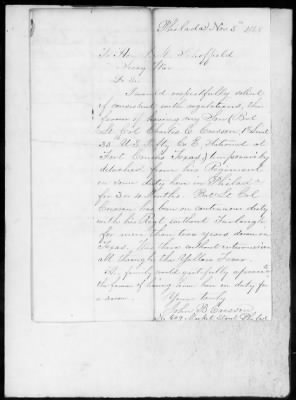 Philada Nov 5" 1868
To Hon J. M. Schofield
Secy War
Dr Sir
I would respectfully solicit
if consistent with regulations, the
favour of having my Son (Bvt
Lt Col Charles C. Cresson 1st Lieut
35th U.S. Infty Co E. stationed at
Fort Concho Texas) temporarily
detached from his Regiment
on some duty here in Philada
for 3 or 4 Months. Bvt Lt Col
Cresson has been on continuous duty
with his Regt, without Furlough
for more than two years down in
Texas, was there without intermission
all through the Yellow Fever.
His family would gratefully appreciate
the favour of having him here on duty for
a season.
Yours truly
John B. Cresson
No 609 Market Street Philada